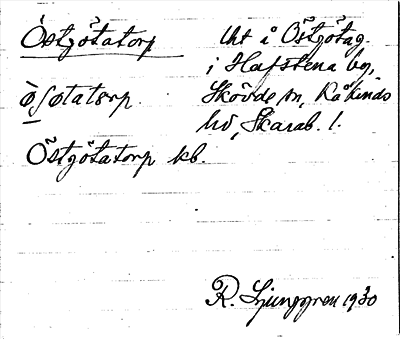 Östgötatorp
Uht å Östgötag.
i Hafstena by,
Skövde sn, Kåkinds
hd, Skarab. l.
Östgötatorp kb.
R. Ljunggren 1930